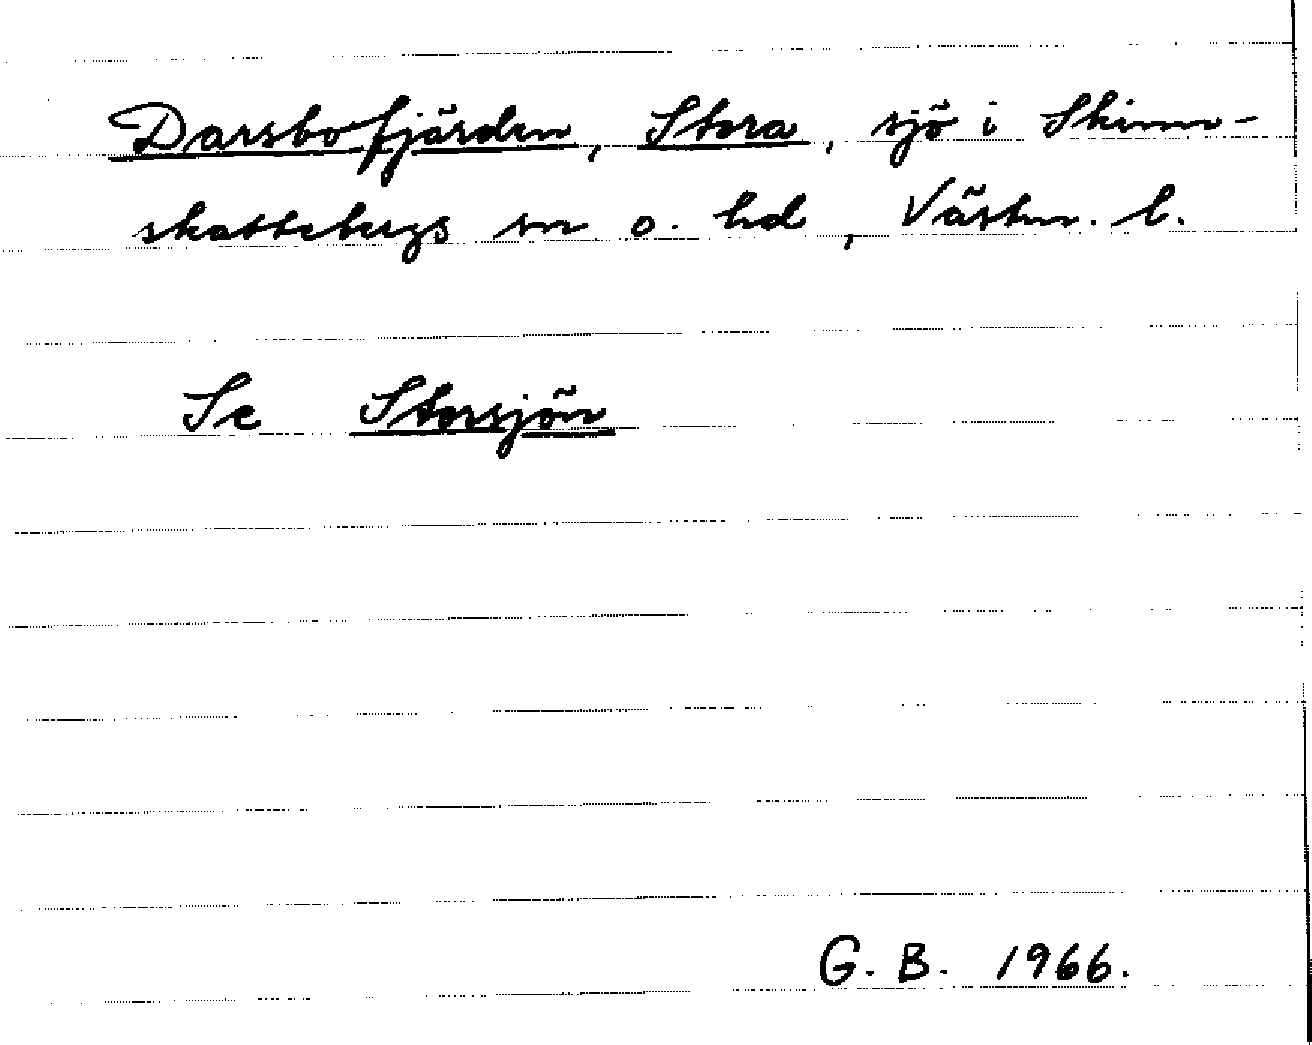 Darsbofjärden, Stora, sjö i Skinn-
skattebergs sn o. hd, Västm. l.
Se Storsjön
G. B. 1966.